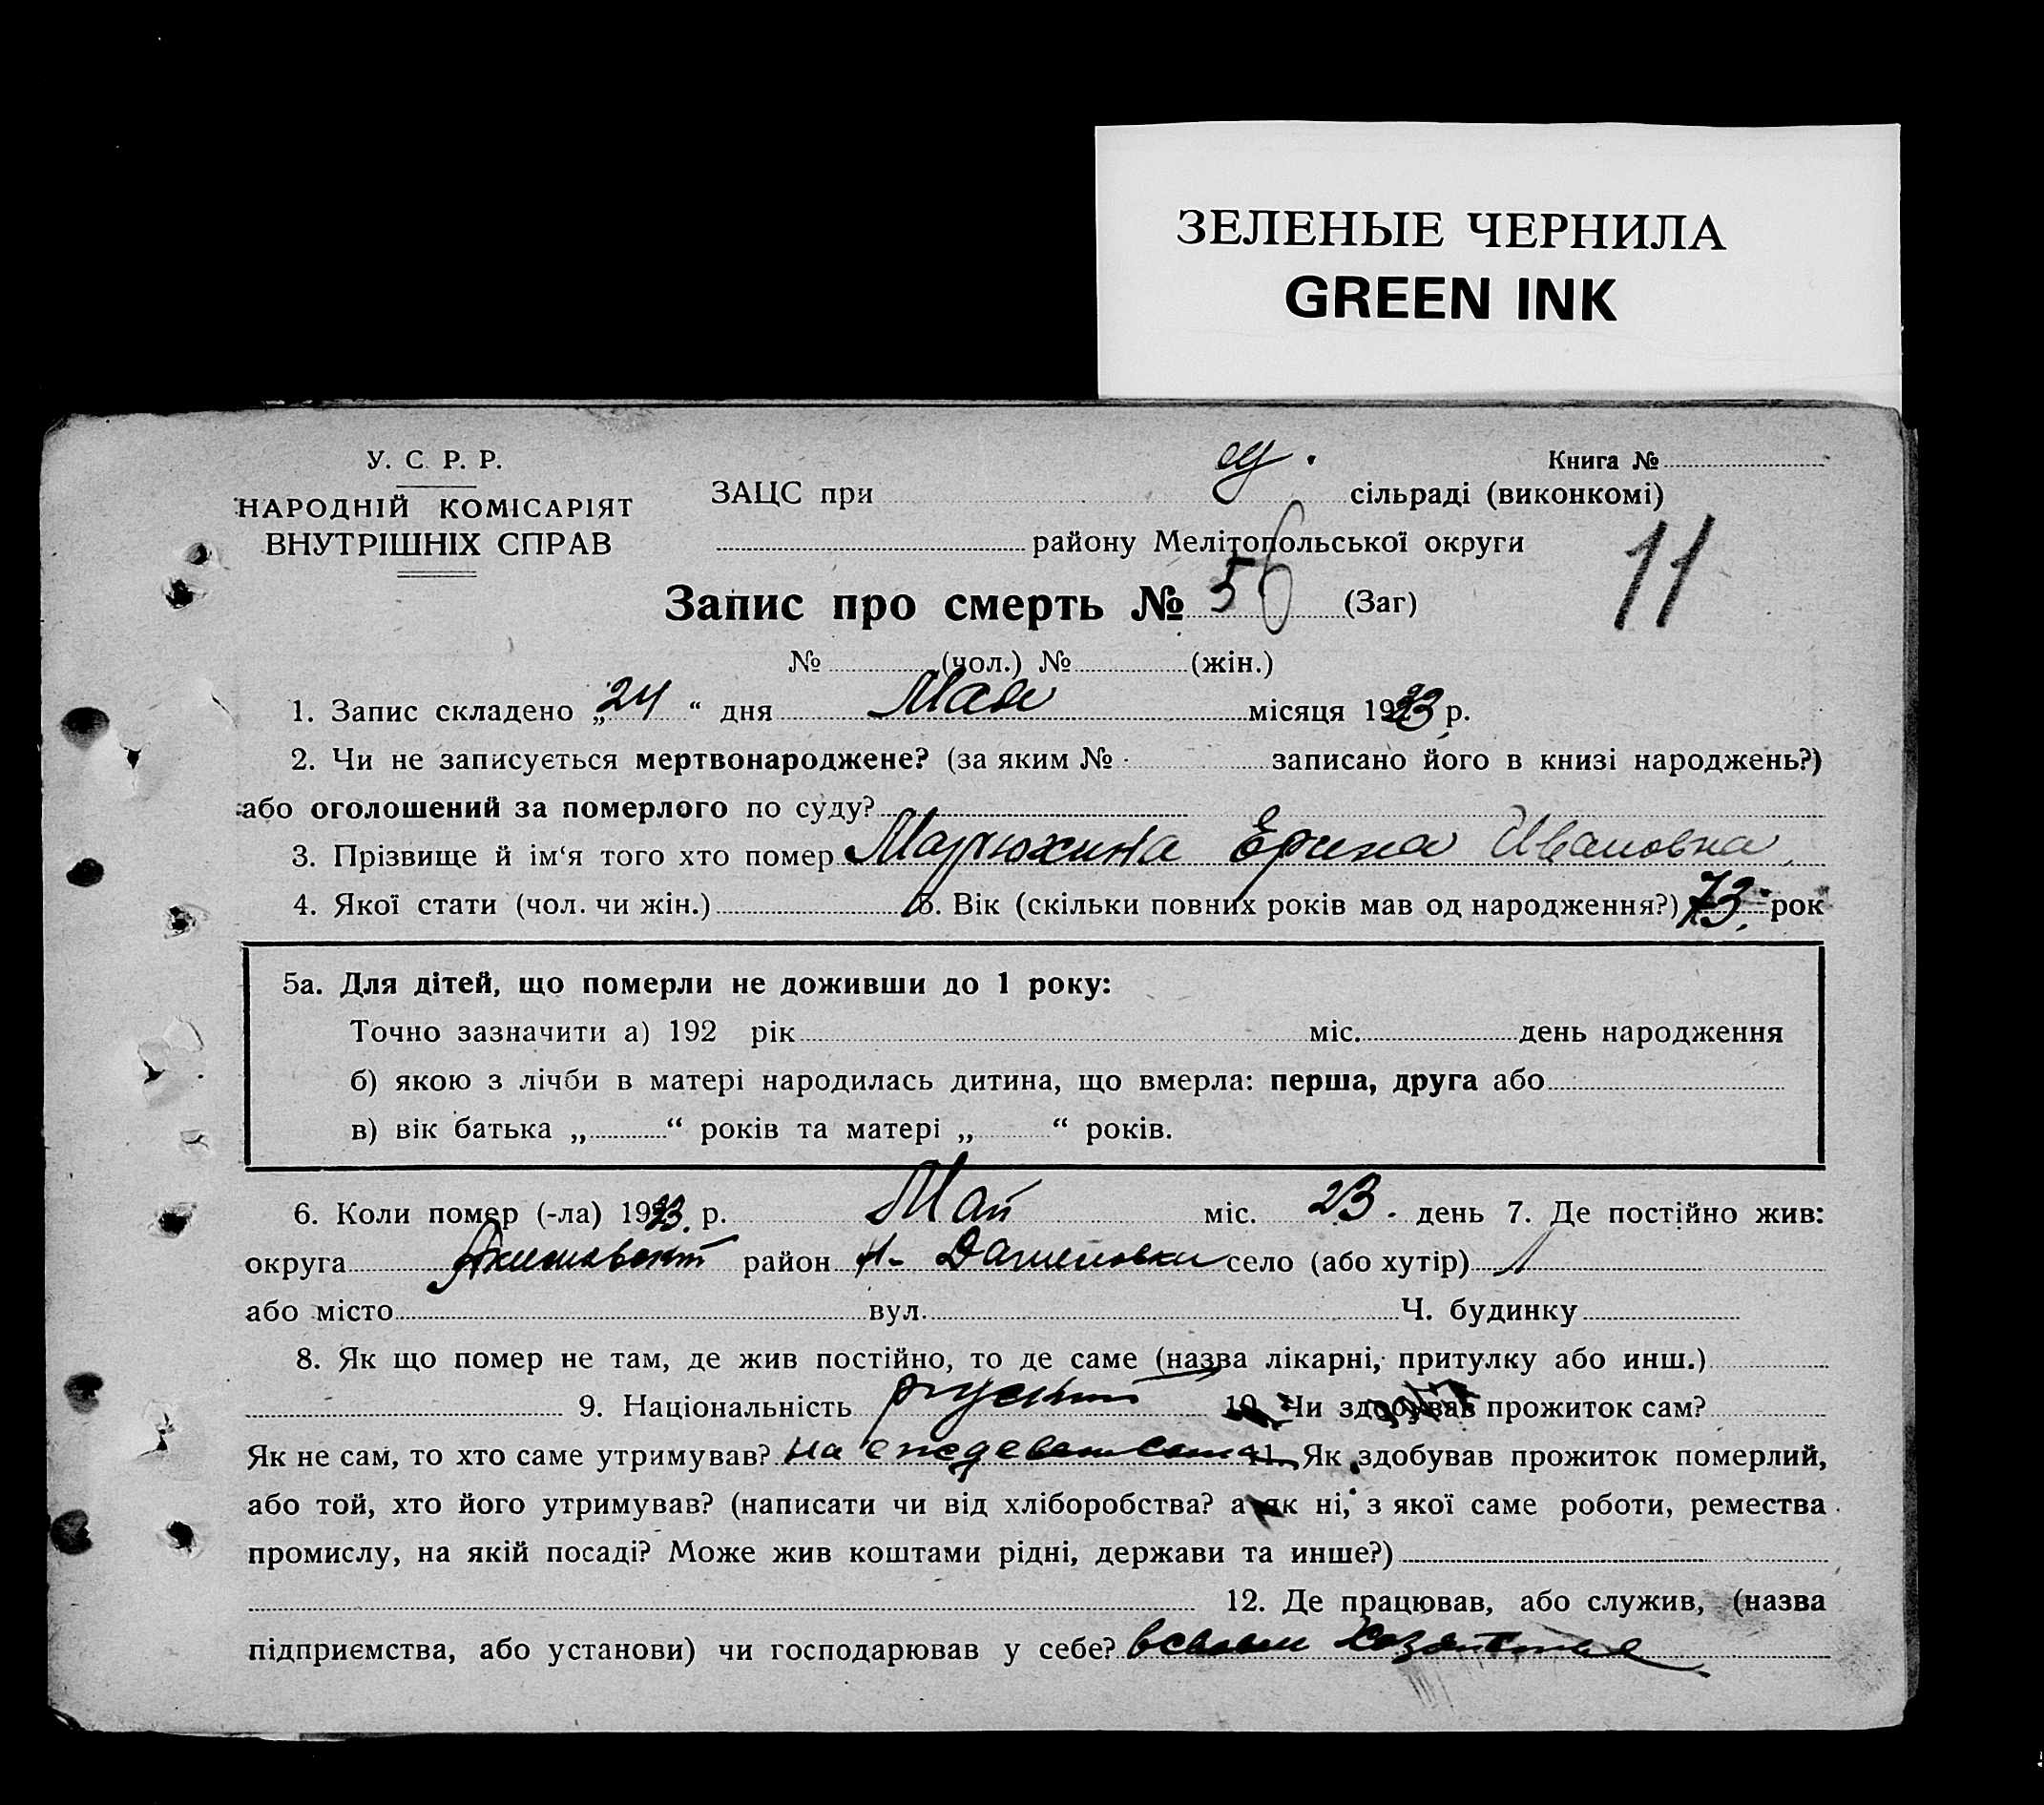 ЗЕЛЕНЫЕ ЧЕРНИЛА
GREEN INK
У. С. Р. Р.
НАРОДНІЙ КОМІСАРІЯТ
ВНУТРІШНІХ СПРАВ
Книга №
ЗАЦС при сільраді (виконкомі)
району Мелітопольської округи
11
Запис про смерть № 56 (Заг)
№ (чол.) № (жін.)
1. Запис складено „24“ дня Мая місяця 1923 р.
2. Чи не записується мертвонароджене? (за яким № записано його в книзі народжень?)
або оголошений за померлого по суду?
3. Прізвище й ім‘я того хто помер Марюхина Ерина Ивановна
4. Якої стати (чол. чи жін.) 5. Вік (скільки повних років мав од народження?) 73 рок
5а. Для дітей, що померли не доживши до 1 року:
Точно зазначити а) 192 рік міс. день народження
б) якою з лічби в матері народилась дитина, що вмерла: перша, друга або
в) вік батька „ “ років та матері „ “ років.
6. Коли помер (-ла) 1923 р. Май міс. 23 день 7. Де постійно жив:
округа район село (або хутір)
або місто вул. Ч. будинку
8. Як що помер не там, де жив постійно, то де саме (назва лікарні, притулку або инш.)
9. Національність 10. Чи здобував прожиток сам?
Як не сам, то хто саме утримував? на 11. Як здобував прожиток померлий,
або той, хто його утримував? (написати чи від хліборобства? а як ні, з якої саме роботи, ремества
промислу, на якій посаді? Може жив коштами рідні, держави та инше?)
12. Де працював, або служив, (назва
підприємства, або установи) чи господарював у себе?